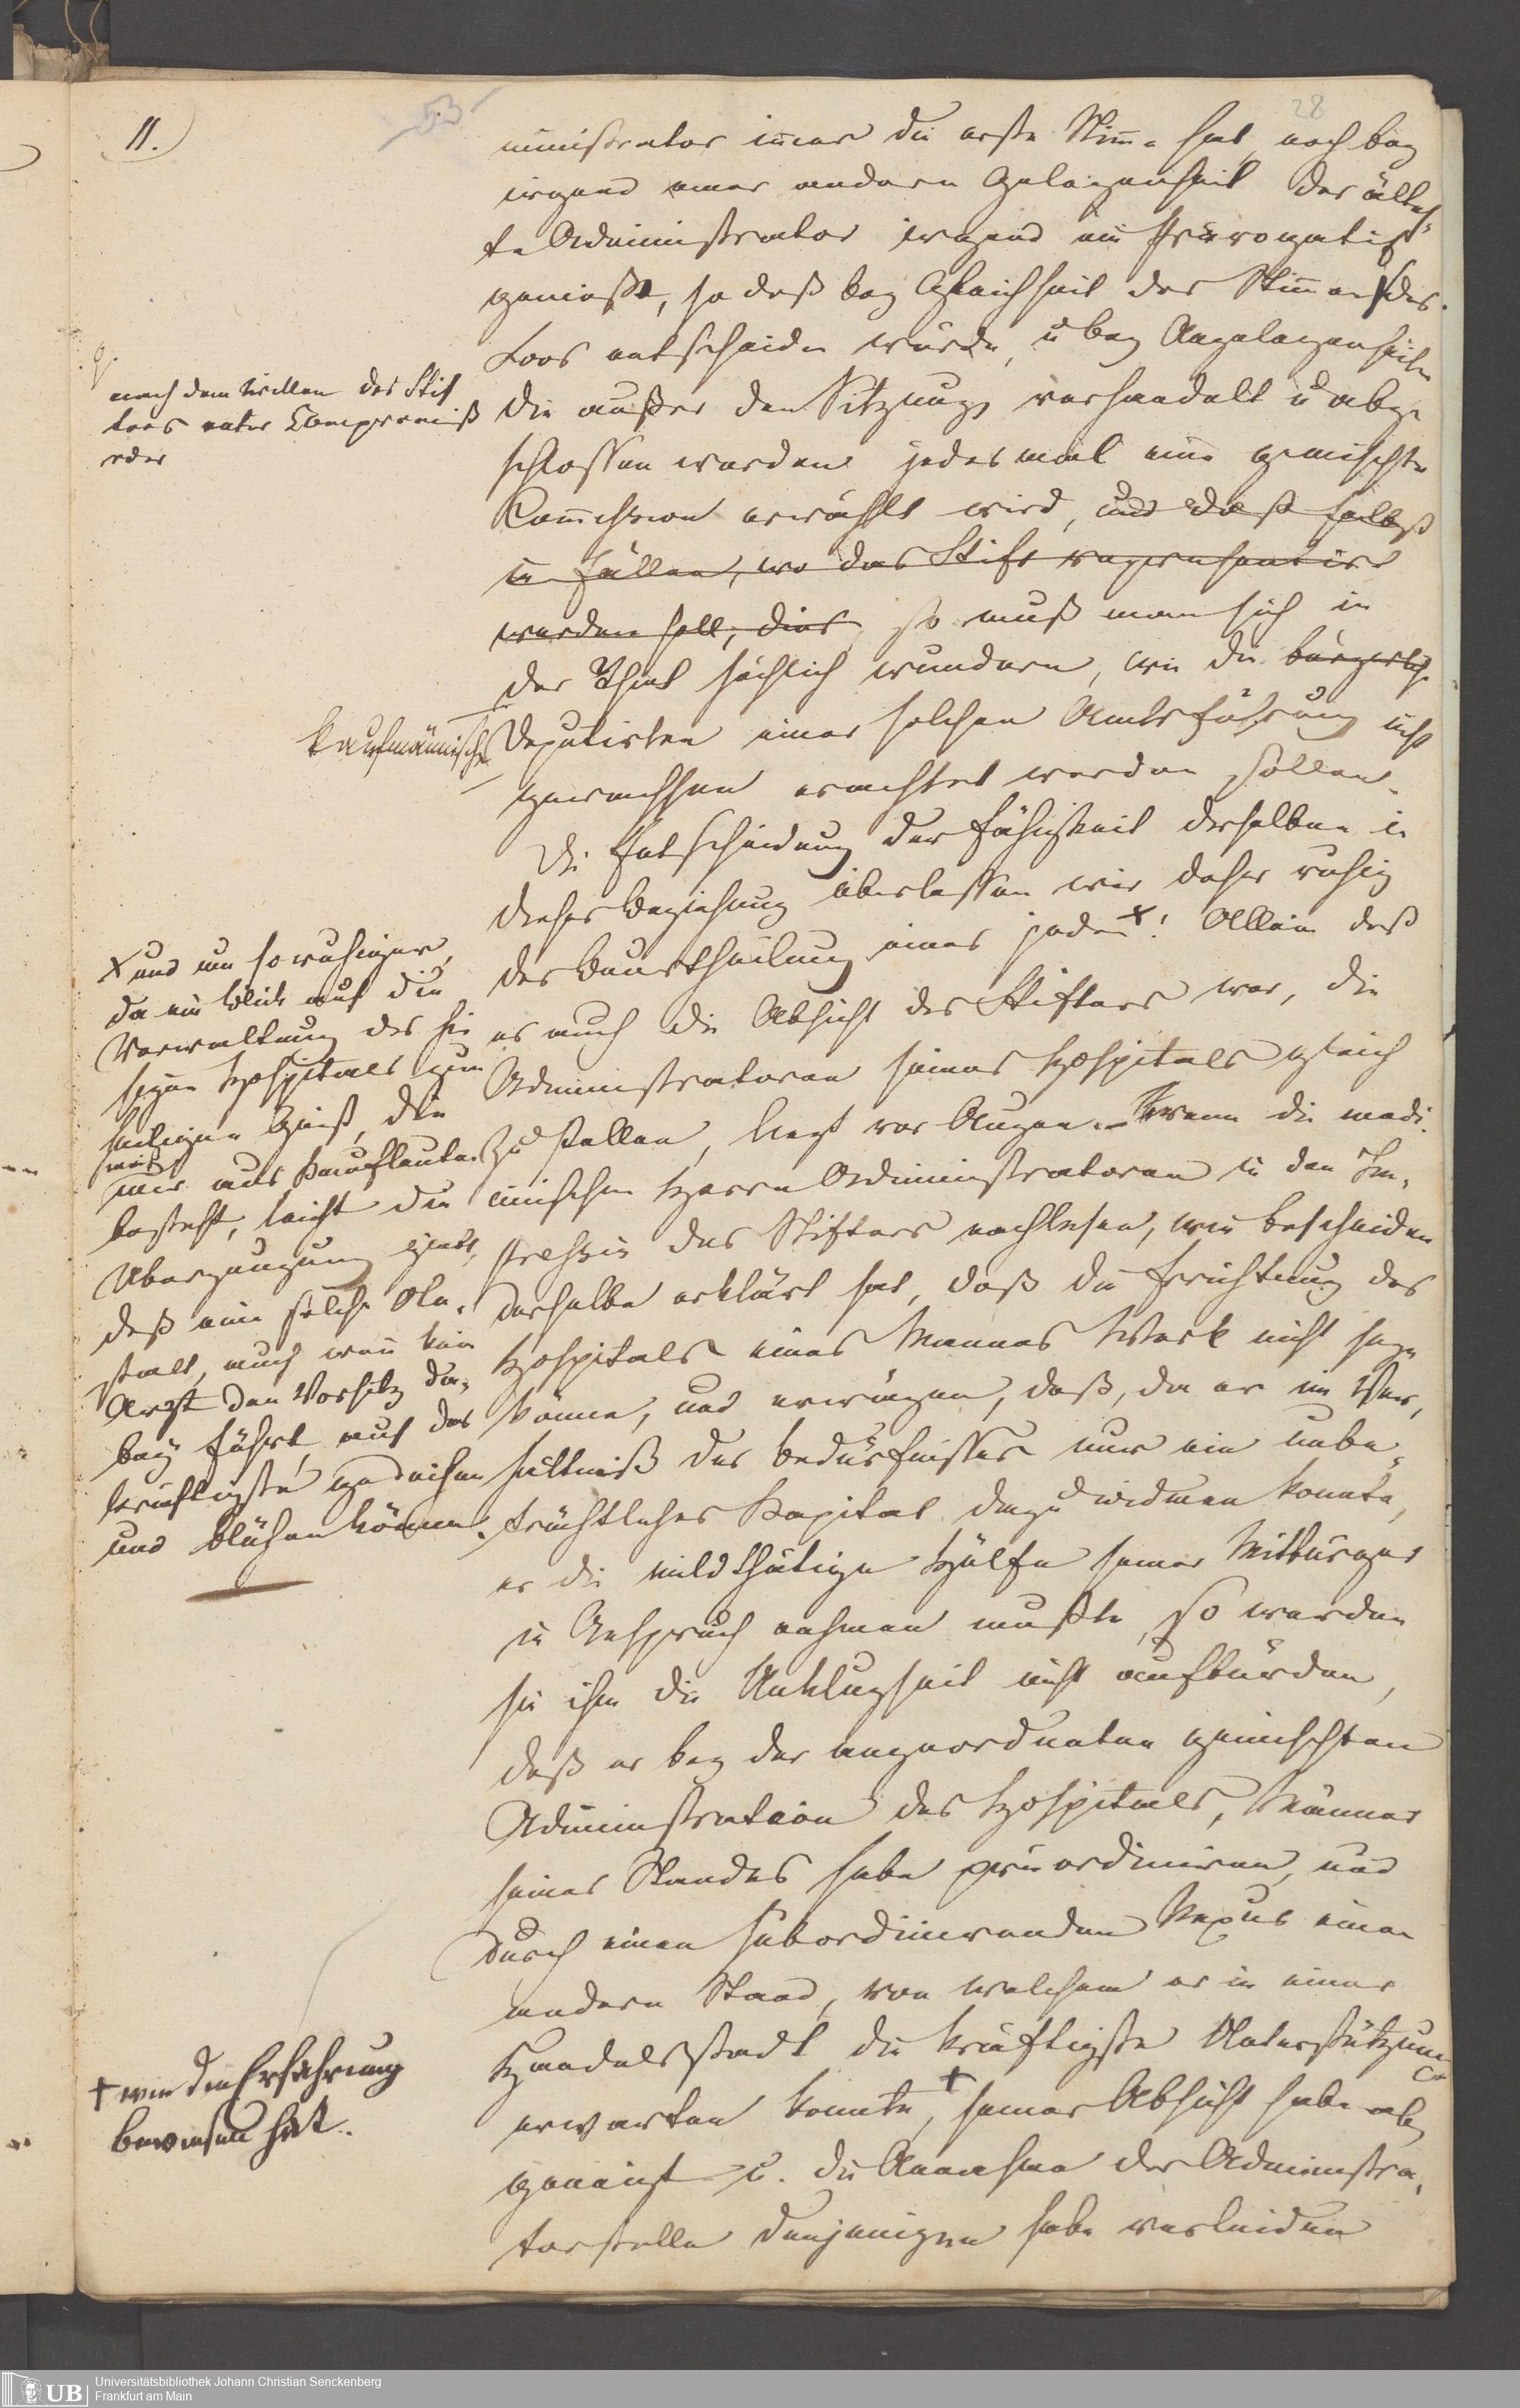 11.
53
28
ministrator im̄er die erste Stim̄e hat, noch bey
irgend einer andern Gelegenheit der ältes-
te Administrator irgend ein Prärogatif
geniesse, so daß bey Gleichheit der Stim̄en das
Loos entscheiden würde, u bey Angelegenheiten
die außer den Sitzungen verhandelt u abge
schlossen werden jedesmal eine gemischte
Com̄ission erwählt wird, und daß selbst
in Fällen, wo das Stift repraesentirt
werden soll, dies so muß man sich in
der That höchlich wundern, wie die bürgerlich
Deputirten einer solchen Amtsführung nicht
gewachsen erachtet werden sollen.
Die Entscheidung der Fähigkeit derselben in
dieser Beziehung überlassen wir daher ruhig
der Beurtheilung eines jeden x! Allein daß
es auch die Absicht des Stifters war, die
Administratoren seines Hospitals gleich
zu stellen, liegt vor Augen. Wenn die medi-
cinischen Herrn Administratoren in den
des Stifters nachlesen, wie bescheiden
derselbe erklärt hat, daß die Errichtung des
Hospitals eines Mannes Werk nicht seyn
könne, und erwägen, daß, da er im Ver-
hältniß des Bedürfnisses nur ein unbe-
trächtliches Kapital dazu widmen konnte,
er die mildthätige Hülfe seiner Mitbürger
in Anspruch nehmen mußte, so werden
sie ihm die Unklugheit nicht aufbürden,
daß er bey der angeordneten gemischten
Administration des Hospitals, Männer
seines Standes habe präordiniren, und
durch einen subordinirenden Nexus einen
andern Stand, von welchem er in einer
Handelsstadt die kräftigste Unterstützung
erwarten konnte, + seiner Absicht habe ab
geneigt u. die Annahme der Administra-
torstelle denjenigen habe verleiden
nach dem Willen des Stif
ters unter Compromiß
oder
kaufmännischen
x und um so ruhiger,
da ein Blick auf die
Verwaltung des hie
sigen Hospitals zum
heiligen Geist, die
nur aus Kaufleuten
besteht, leicht die
Überzeugung giebt,
daß eine solche An-
stalt, auch wen̄ kein
Arzt den Vorsitz da-
bey führt, auf das
kräftigste gedeihen
und blühen könne.
+ wie die Erfahrung
bewiesen hat.
UB
Universitätsbibliothek Johann Christian Senckenberg
Frankfurt am Main